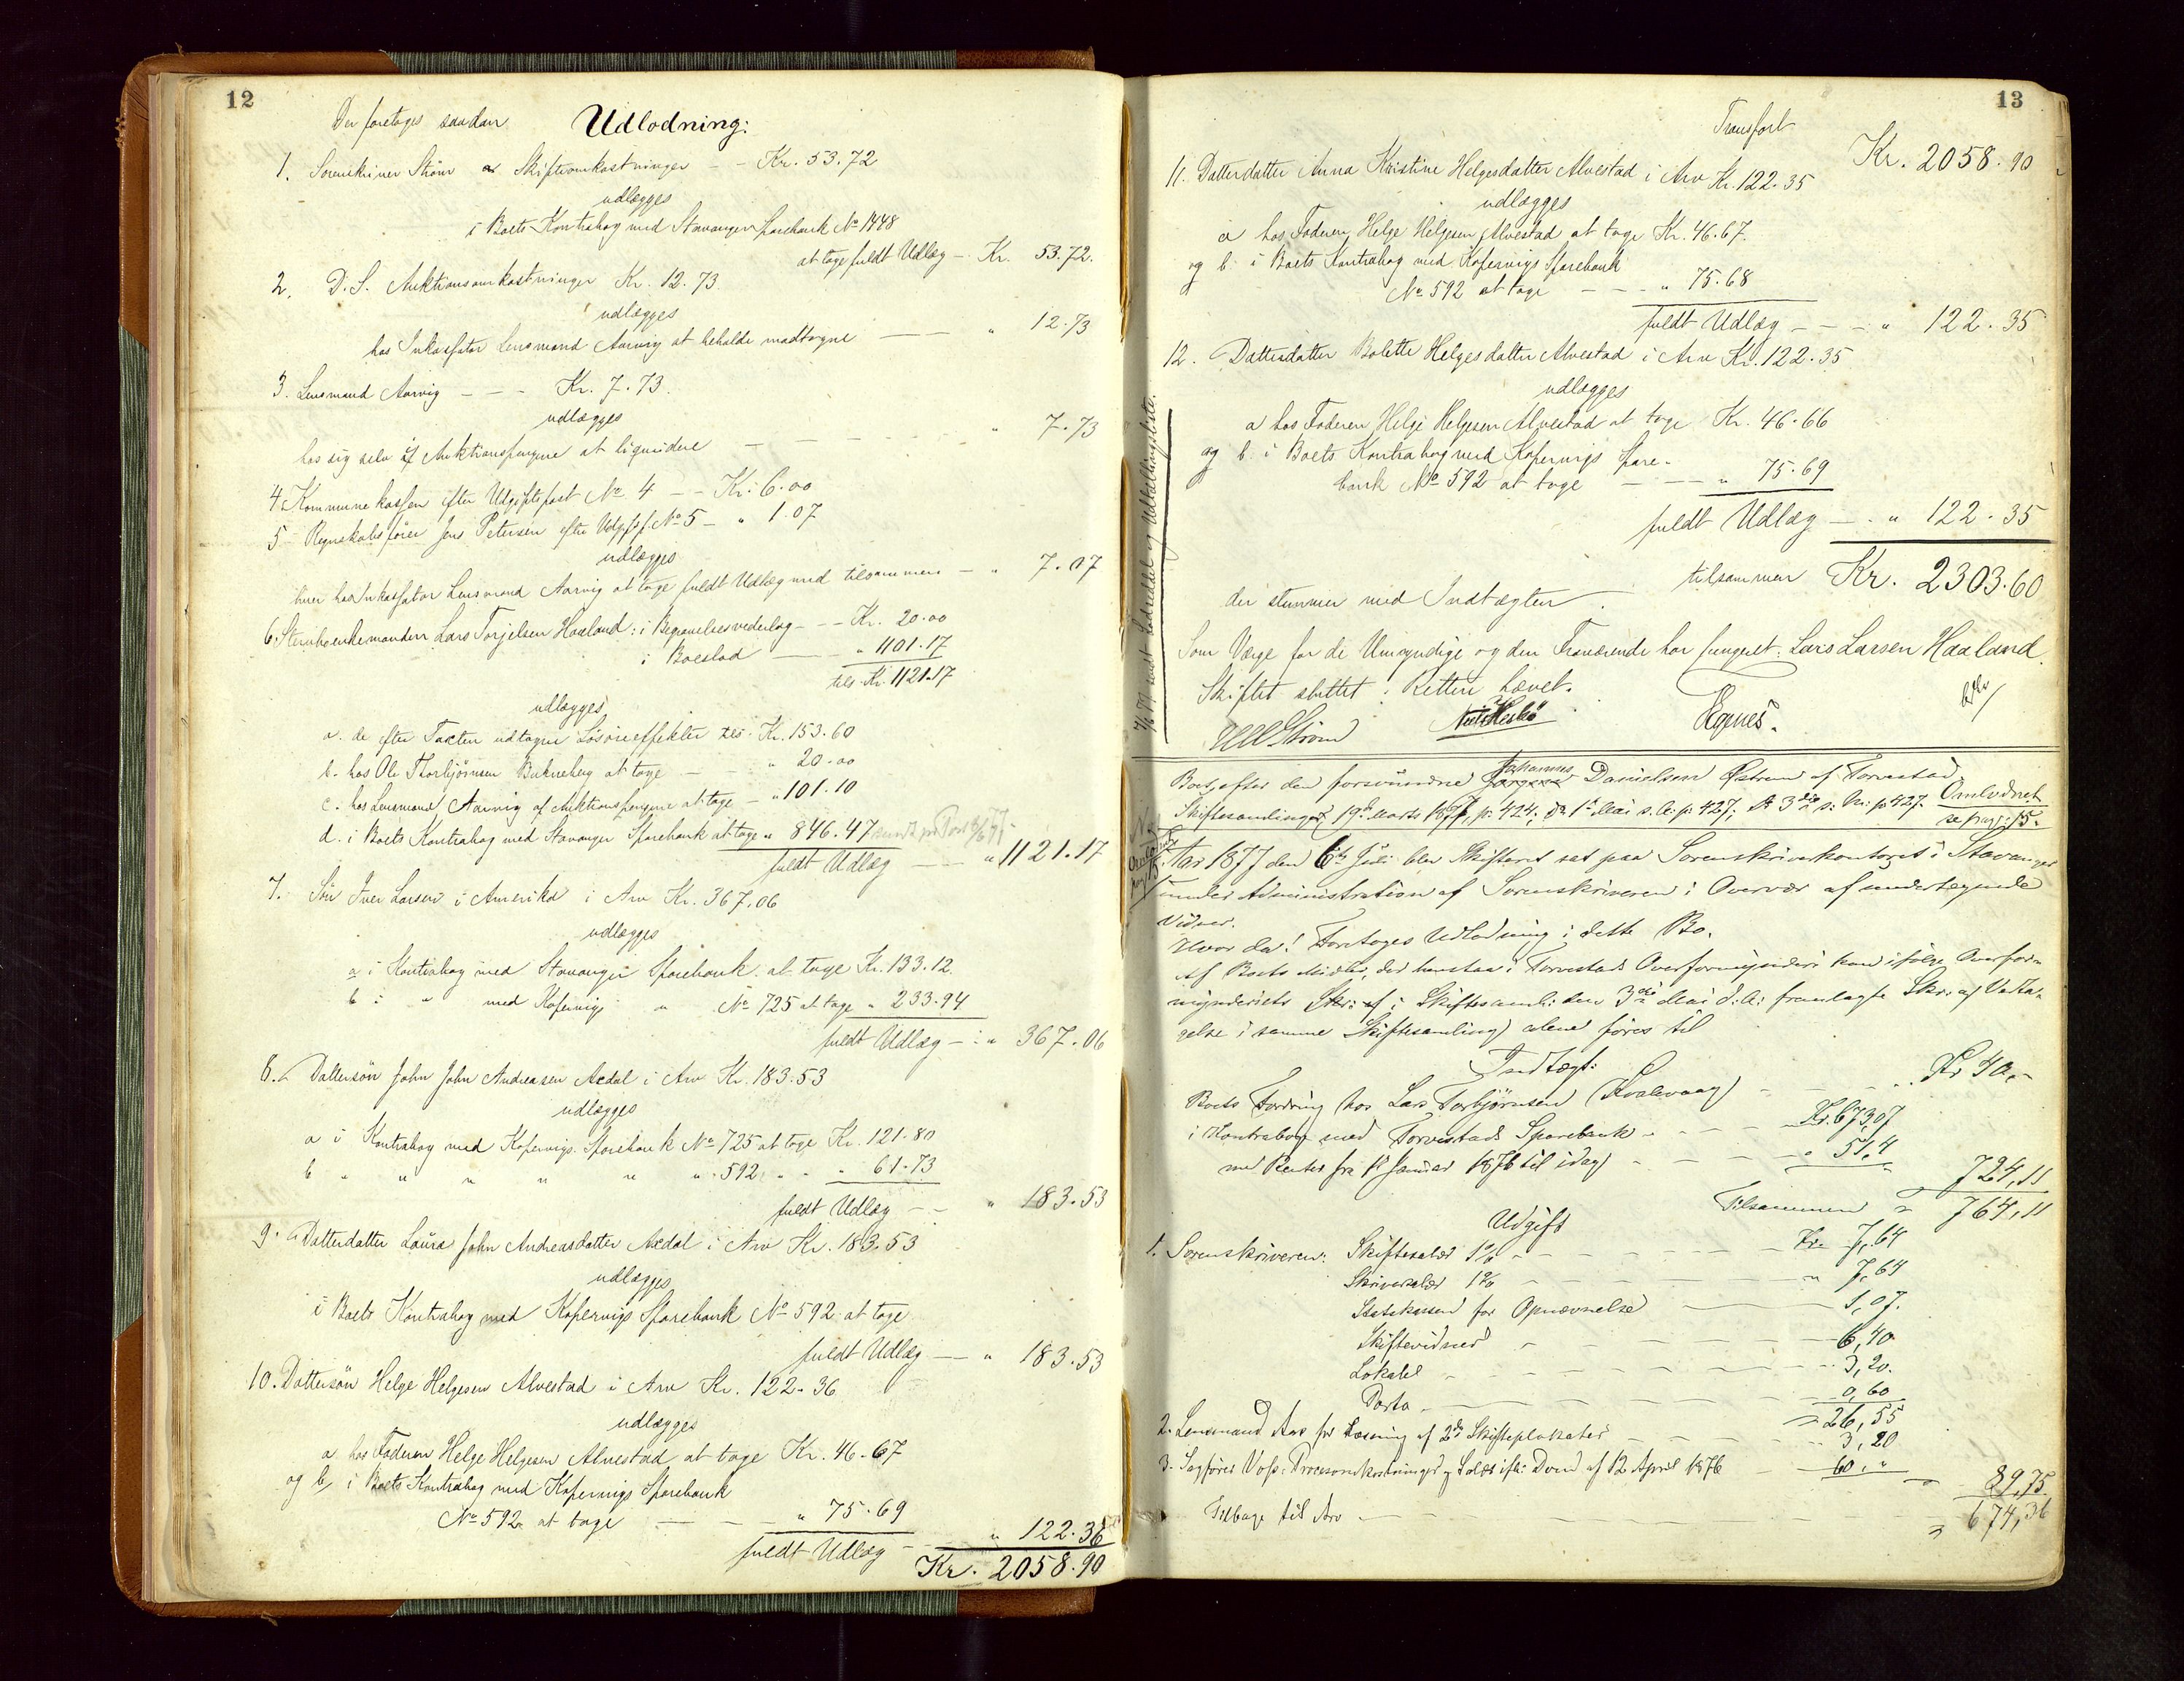 12
Der foretages saadan Udlodning:
1. Sorenskriver Strøm Skifteomkostninger - - Kr. 53.72
udlægges
i Boets Kontrabog med Stavanger Sparebank No 1448
at tage fuldt Udlæg - Kr. 53.72.
2. D.S. Auktionsomkostninger Kr. 12.73
udlægges
hos Inkassator Lensmand Aarvig at beholde modtagne - - " 12.73
3. Lensmand Aarvig - - - Kr. 7.73.
udlægges
hos sig selv af Auktionspengene at liquidere - - - - " 7.73
4. Kommunekassen efter Udgiftspost No 4 - - Kr. 6.00
5 - Regnskabsfører Jens Petersen efter Udgfsp. No 5 - " 1.07
udlægges
hver hos Inkassator Lensmand Aarvig at tage fuldt Udlæg med tilsammen - " 7.07
6. Sterboenkemanden Lars Torjelsen Haaland: i Begravelsesvederlag - - Kr. 20.00
i Boeslod " 1101.17
tils. Kr. 1121.17
udlægges
a. de efter Taxten udtagne Løsøreeffekter tils. Kr. 153.60
b. hos Ole Thorbjørnsen Bukneberg at tage - " 20.00
c. hos Lensmand Aarvig af Auktionspengene at tage - " 101.10
d. i Boets Kontrabog med Stavanger Sparebank at tage " 846.47
fuldt Udlæg - - " 1121.17
7. Søn Iver Larsen i Amerika i Arv Kr. 367.06
udlægges
a i Kontrabog med Stavanger Sparebank at tage Kr. 133.12.
b i " med Kopervigs " No 725 at tage " 233.94
fuldt Udlæg - : " 367.06
8. Dattersøn John John Andreasen Aedal i Arv Kr. 183.53
udlægges
a i Kontrabog med Kopervigs Sparebank No 725 at tage Kr. 121.80
b " " " " " " 592 " " " 61.73
fuldt Udlæg - - " 183.53
9. Datterdatter Laura John Andreasdatter Aedal i Arv Kr. 183.53
udlægges
i Boets Kontrabog med Kopervigs Sparebank No 592 at tage
fuldt Udlæg - - " 183.53
10. Dattersøn Helge Helgesen Alvestad i Arv Kr. 122.36
udlægges
a hos Faderen Helge Helgesen Alvestad at tage Kr. 46.67
og b, i Boets Kontrabog med Kopervigs Sparebank
No 592 at tage - - - " 75.69
fuldt Udlæg - - " 122.36
Kr. 2058.90
13
Transport
Kr. 2058.90
11. Datterdatter Anna Kristine Helgesdatter Alvestad i Arv Kr. 122.35
udlægges
a hos Faderen Helge Helgesen Alvestad at tage Kr. 46.67.
og b. i Boets Kontrabog med Kopervigs Sparebank
No 592 at tage - - - " 75.68
fuldt Udlæg - - - " 122.35
12. Datterdatter Bolette Helgesdatter Alvestad i Arv Kr. 122.35
udlægges
a hos Faderen Helge Helgesen Alvestad at tage Kr. 46.66
og b. i Boets Kontrabog med Kopervigs Spare-
bank No 592 at tage - - - " 75.69
fuldt Udlæg - . " 122.35
tilsammen Kr. 2303.60
der stemmer med Indtægten.
Som Værge for de Umyndige og den Fraværende har fungeret: Lars Larsen Haaland.
Skiftet sluttet. Retten hævet.
Strøm Egenes.
Boet efter den forsvundne Johannes Danielsen Østrem af Torvestad
Skiftesamlinger 19 Marts 1877, p. 424; d. 1ste Mai s. A. p. 427; d. 3die s. M. p. 427. Omlodnet
se pag: 15.
Aar 1877 den 6te Juli blev Skifteret sat paa Sorenskriverkontoret i Stavanger
under Administration af Sorenskriveren i Overvær af undertegnede
Vidner.
Hvor da: Foretages Udlodning i dette Bo.
Af Boets Midler, der henstaa i Torvestads Overformynderi kan ifølge Overfor-
mynderiets Skr: i Skiftesaml: den 3die Mai d. A: fremlagte Skr. og Vedta-
gelse i samme Skiftesamling alene føres til
Indtægt:
Boets Fordring hos Lars Torbjørnsen Kvalevaag - - - - Kr 40,-
i Kontrabog med Torvestads Sparebank - - - - Kr. 673,07
med Renter fra 1ste Januar 1876 til idag - - - - " 51,4
724,11
Tilsammen " 764,11
Udgift
1. Sorenskriveren: Skiftesalær 1% - - - - - Kr. 7,64
Skriversalær 1% - - - - " 7,64
Statskassen for Opnævnelse - - 1,07.
Skiftevidner - - - 6,40.
Lokalet - - - - 3,20.
Porto - - - - 0,60
= 26,55
2. Lensmand Aas for Læsning af 2de Skifteplakater - - - 3,20
3. Sagfører Voss: Procesomkostninger & Salær ifl. Dom af 12 April 1876 60,"
" 89,75.
Tilbage til Arv - - - - - " 674,36